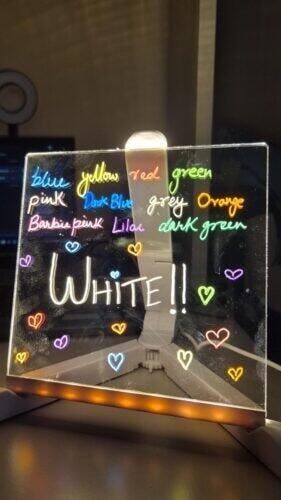 blue yellow red green
pink Dark Blue grey Orange
Barbie pink Lilac dark green
WHITE!!